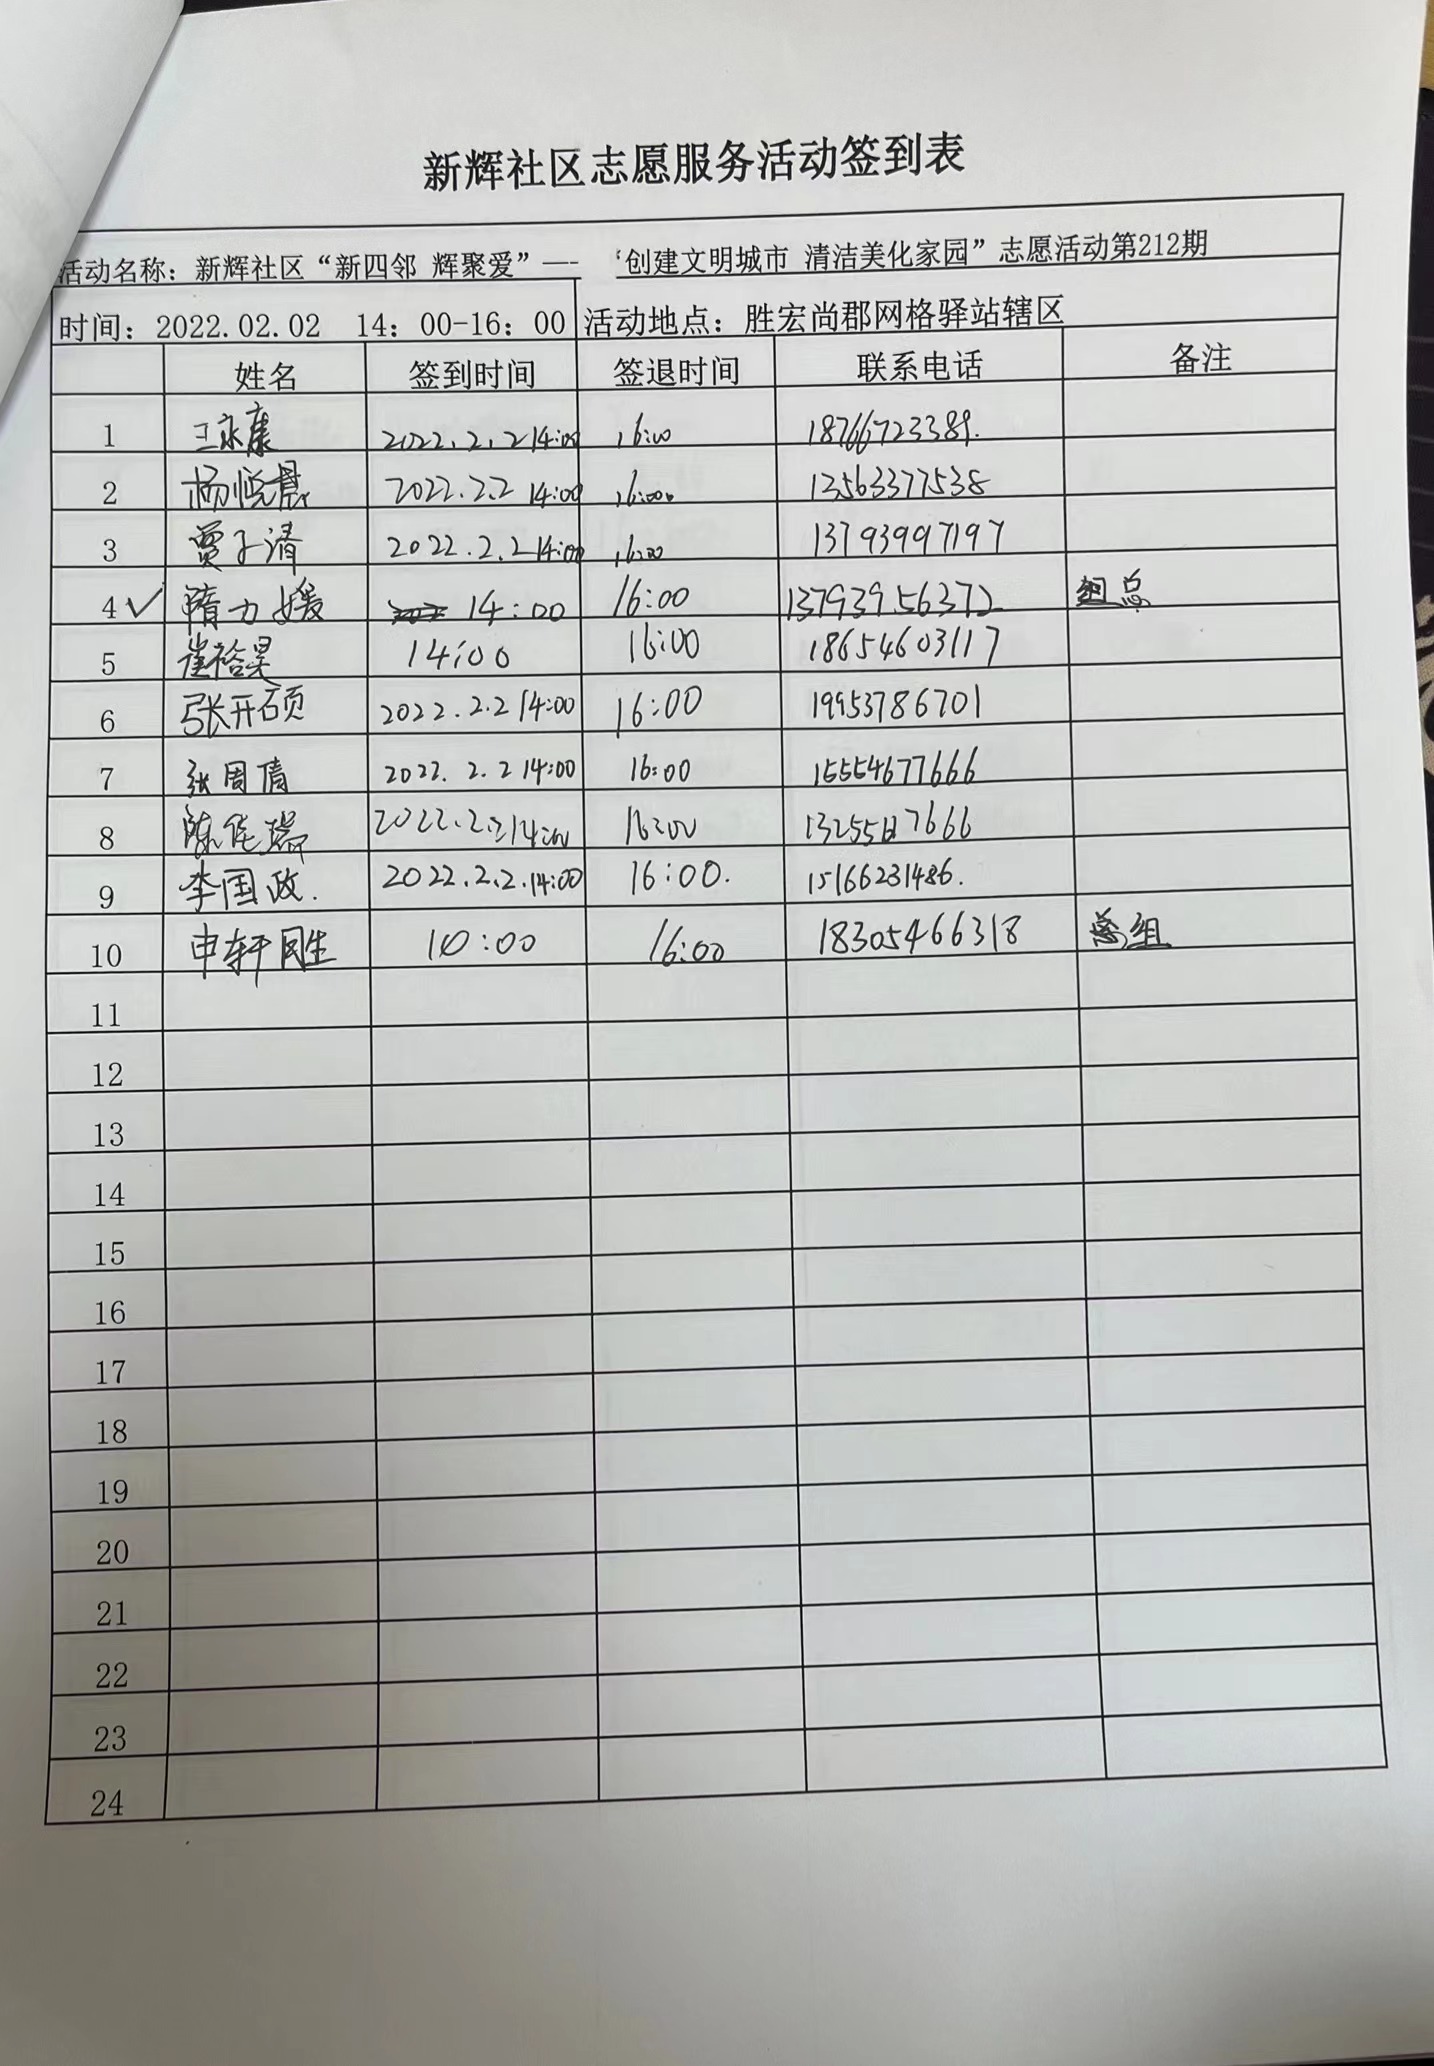 新辉社区志愿服务活动签到表
活动名称：新辉社区“新四邻 辉聚爱”—-  ‘创建文明城市 清洁美化家园”志愿活动第212期
时间：2022.02.02 14：00-16：00 活动地点：胜宏尚郡网格驿站辖区
姓名 签到时间 签退时间 联系电话 备注
1 王永康 2022.2.2 14:00 16:00 18766723389.
2 杨悦晨 2022.2.2 14:00 16:00 13563377538
3 贾子清 2022.2.2 14:00 16:00 13793997197
4 ✓ 隋力媛 14:00 16:00 13793956372 组总
5 崔裕昊 14:00 16:00 18654603117
6 张开硕 2022.2.2 14:00 16:00 19953786701
7 张周倩 2022.2.2 14:00 16:00 15554677666
8 陈佳瑞 2022.2.2 14:00 16:00
9 李国政. 2022.2.2.14:00 16:00. 15166231486.
10 申轩民生 10:00 16:00 18305466318 总组
11
12
13
14
15
16
17
18
19
20
21
22
23
24